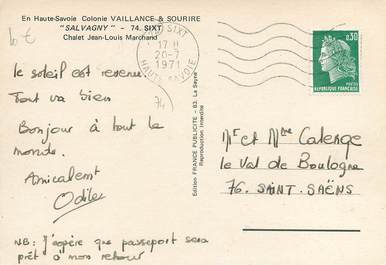 En Haute-Savoie Colonie VAILLANCE & SOURIRE
"SALVAGNY" - 74. SIXT
Chalet Jean-Louis Marchand
10 €
SIXT
17 H
20-7
1971
HAUTE SAVOIE
0,30
POSTES
REPUBLIQUE FRANÇAISE
(74)
le soleil est revenu.
Tout va bien
Bonjour à tout le
monde.
Amicalement
Odile
NB: J'espère que passeport sera
prêt à mon retour
Edition FRANCE PUBLICITE - 83. La Seyne
Reproduction Interdite
Mr et Mme Calenge
le Val de Boulogne
76. SAINT-SAËNS